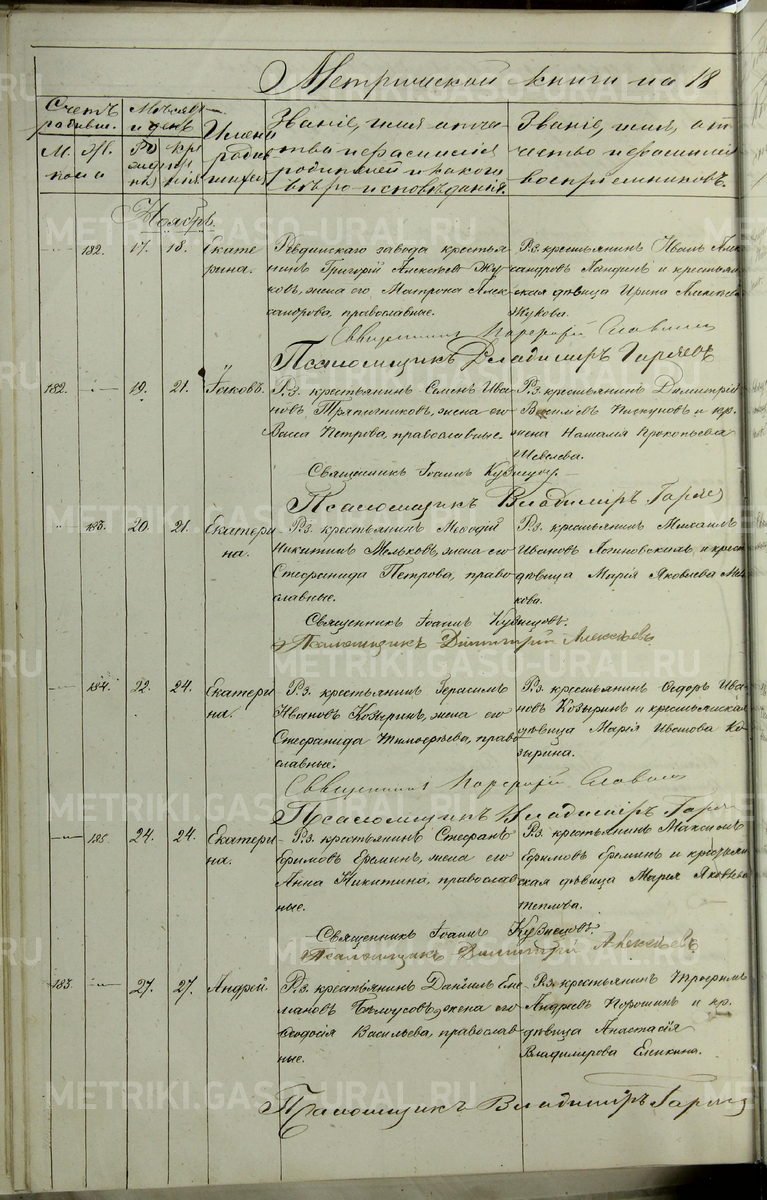 Метрической книги на 18
Счетъ родивш. Мѣсяцъ и день Имена родив шихся Званіе, имя отче ства и фамилія родителей и какого вѣроисповѣданія. Званіе, имя, от чество и фамилія воспріемниковъ.
М. Ж. Ро жде нія Кре ще нія.
Ноябрь.
182. 17. 18. Екате рина.
Ревдинскаго завода крестья
нинъ Григорій Алексѣевъ Жу
ковъ, жена его Матрона Алек
сандрова, православные.
Р.з. крестьянинъ Иванъ Алек
сандровъ и крестьян
ская дѣвица Ирина Алексѣева
Жукова.
Священникъ
Псаломщикъ Владимиръ Горяевъ
182. 19. 21. Іаковъ.
Р.з. крестьянинъ Семенъ Ива
новъ Тряпичниковъ, жена его
Васса Петрова, православные.
Р.з. крестьянинъ Димитрій
Пискуновъ и кр.
жена Наталія Прокопьева
Шевелева.
Священникъ Іоаннъ Кузнецовъ.
Псаломщикъ Владимиръ Горяев
183. 20. 21. Екатери на.
Р.з. крестьянинъ Меѳодій
Никитинъ Мельковъ, жена его
Стефанида Петрова, право
славные.
Р.з. крестьянинъ Михаилъ
Ивановъ Логиновскихъ и крест.
дѣвица Марія Яковлева Мель
кова.
Священникъ Іоаннъ Кузнецовъ.
Псаломщикъ Димитрій Алексѣевъ
184. 22. 24. Екатери на.
Р.з. крестьянинъ Герасимъ
Ивановъ Козыринъ, жена его
Стефанида Тимофеева, право
славные.
Р.з. крестьянинъ Ѳедоръ Ива
новъ Козыринъ и крестьянская
дѣвица Марія Иванова Ко
зырина.
Священникъ
Псаломщикъ Владимиръ Горяев
185. 24. 24. Екатери на.
Р.з. крестьянинъ Стефанъ
Ефимовъ Ереминъ, жена его
Анна Никитина, православ
ные.
Р.з. крестьянинъ Максимъ
Ефимовъ Ереминъ и крестьян
ская дѣвица Марія Яковлева
Теплова.
Священникъ Іоаннъ Кузнецовъ.
Псаломщикъ Димитрій Алексѣевъ
183. 27. 27. Андрей.
Р.з. крестьянинъ Даніилъ Еме
льяновъ Бѣлоусовъ, жена его
Ѳеодосія Васильева, православ
ные.
Р.з. крестьянинъ
Андреевъ Порошинъ и кр.
дѣвица Анастасія
Владимирова Еликина.
Псаломщикъ Владимиръ Горяев
METRIKI.GASO-URAL.RU